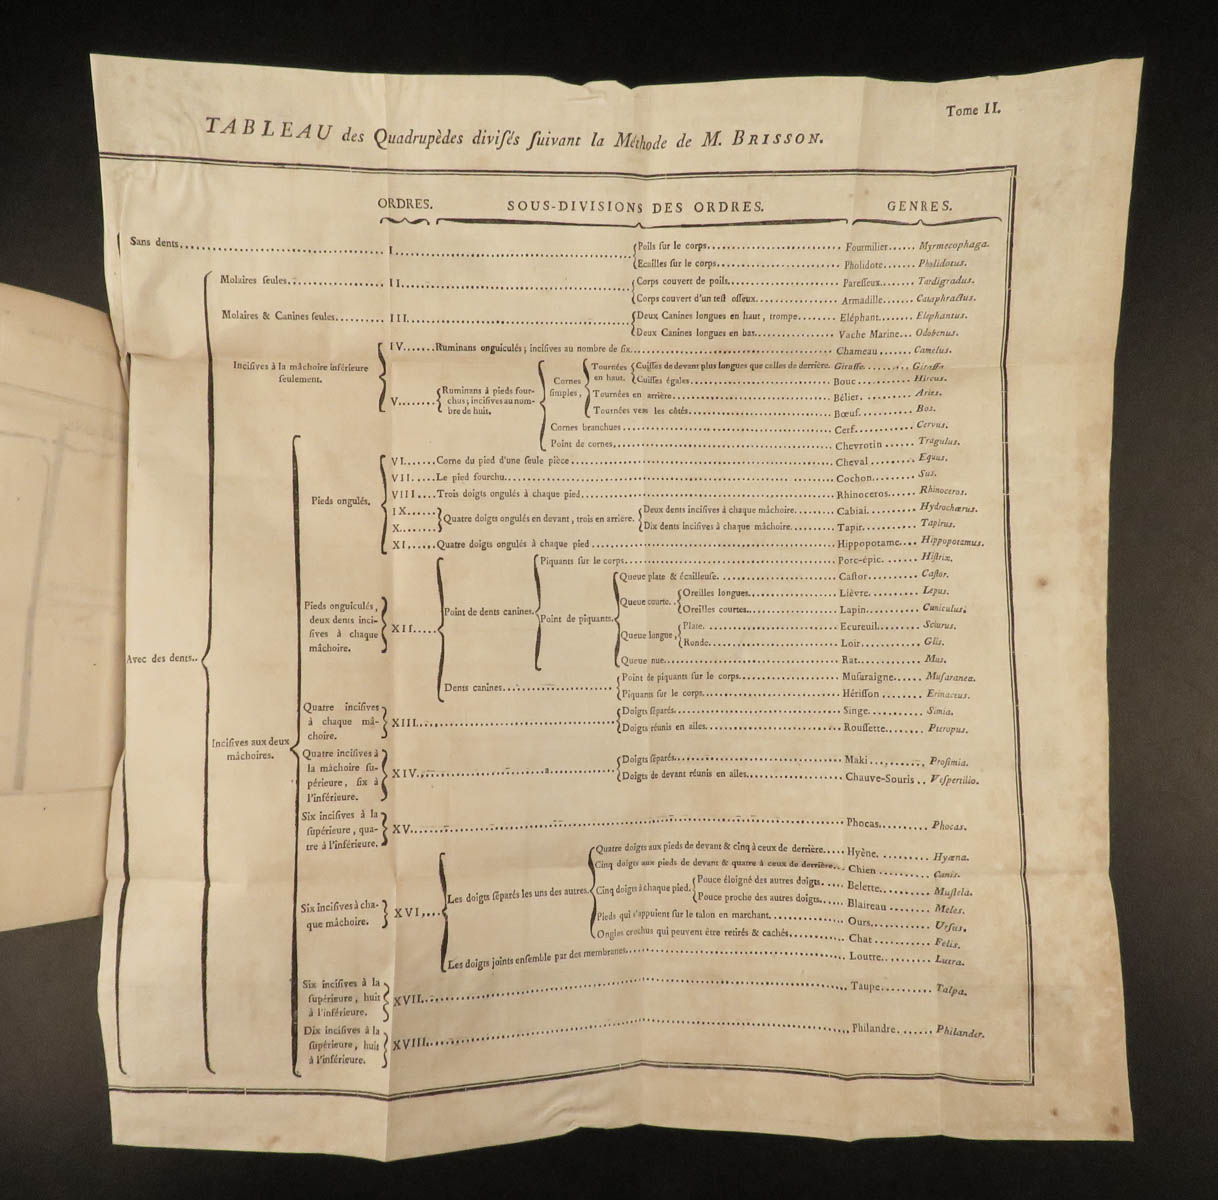 Tome II.
TABLEAU des Quadrupèdes diviſés ſuivant la Méthode de M. BRISSON.
ORDRES. SOUS-DIVISIONS DES ORDRES. GENRES.
Sans dents I.
Poils ſur le corps Fourmilier Myrmecophaga.
Ecailles ſur le corps Pholidote Pholidotus.
Avec des dents..
Molaires ſeules. II.
Corps couvert de poils Pareſſeux Tardigradus.
Corps couvert d'un teſt oſſeux Armadille Cataphractus.
Molaires & Canines ſeules III.
Deux Canines longues en haut, trompe Eléphant Elephantus.
Deux Canines longues en bas Vache Marine Odobenus.
Inciſives à la mâchoire inférieure
ſeulement.
IV. Ruminans onguiculés; inciſives au nombre de ſix Chameau Camelus.
V. Ruminans à pieds four-
chus; inciſives au nom-
bre de huit.
Cornes
ſimples,
Tournées
en haut.
Cuiſſes de devant plus longues que celles de derrière. Giraffe Giraffa
Cuiſſes égales Bouc Hircus.
Tournées en arrière Bélier Aries.
Tournées vers les côtés Bœuf Bos.
Cornes branchues Cerf Cervus.
Point de cornes Chevrotin Tragulus.
Inciſives aux deux
mâchoires.
Pieds ongulés.
VI. Corne du pied d'une ſeule pièce Cheval Equus.
VII. Le pied fourchu Cochon Sus.
VIII. Trois doigts ongulés à chaque pied Rhinoceros Rhinoceros.
IX.
X.
Quatre doigts ongulés en devant, trois en arrière.
Deux dents inciſives à chaque mâchoire Cabiai Hydrochærus.
Dix dents inciſives à chaque mâchoire Tapir Tapirus.
XI. Quatre doigts ongulés à chaque pied Hippopotame Hippopotamus.
Pieds onguiculés,
deux dents inci-
ſives à chaque
mâchoire.
XII.
Point de dents canines.
Piquants ſur le corps Porc-épic Hiſtrix.
Point de piquants.
Queue plate & écailleuſe Caſtor Caſtor.
Queue courte.
Oreilles longues Lièvre Lepus.
Oreilles courtes Lapin Cuniculus.
Queue longue,
Plate Ecureuil Sciurus.
Ronde Loir Glis.
Queue nue Rat Mus.
Dents canines
Point de piquants ſur le corps Muſaraigne Muſaranea.
Piquants ſur le corps Hériſſon Erinaceus.
Quatre inciſives
à chaque mâ-
choire.
XIII.
Doigts ſéparés Singe Simia.
Doigts réunis en aîles Rouſſette Pteropus.
Quatre inciſives à
la mâchoire ſu-
périeure, ſix à
l'inférieure.
XIV.
Doigts ſéparés Maki Proſimia.
Doigts de devant réunis en aîles Chauve-Souris Veſpertilio.
Six inciſives à la
ſupérieure, qua-
tre à l'inférieure.
XV. Phocas Phocas.
Six inciſives à cha-
que mâchoire.
XVI.
Les doigts ſéparés les uns des autres.
Quatre doigts aux pieds de devant & cinq à ceux de derrière Hyène Hyæna.
Cinq doigts aux pieds de devant & quatre à ceux de derrière Chien Canis.
Cinq doigts à chaque pied.
Pouce éloigné des autres doigts Belette Muſtela.
Pouce proche des autres doigts Blaireau Meles.
Pieds qui s'appuient ſur le talon en marchant Ours Urſus.
Ongles crochus qui peuvent être retirés & cachés Chat Felis.
Les doigts joints enſemble par des membranes Loutre Lutra.
Six inciſives à la
ſupérieure, huit
à l'inférieure.
XVII. Taupe Talpa.
Dix inciſives à la
ſupérieure, huit
à l'inférieure.
XVIII. Philandre Philander.